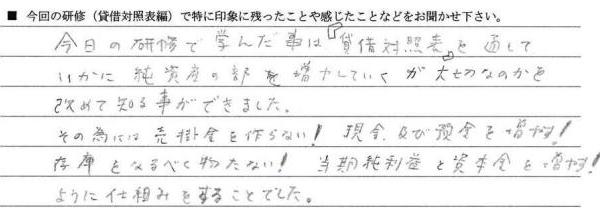 ■ 今回の研修（貸借対照表編）で特に印象に残ったことや感じたことなどをお聞かせ下さい。
今日の研修で学んだ事は『貸借対照表』を通して
いかに純資産の部を増やしていくが大切なのかを
改めて知る事ができました。
その為には売掛金を作らない! 現金及び預金を増やす!
在庫をなるべく物たない! 当期純利益と資本金を増やす!
ように仕組みをすることでした。